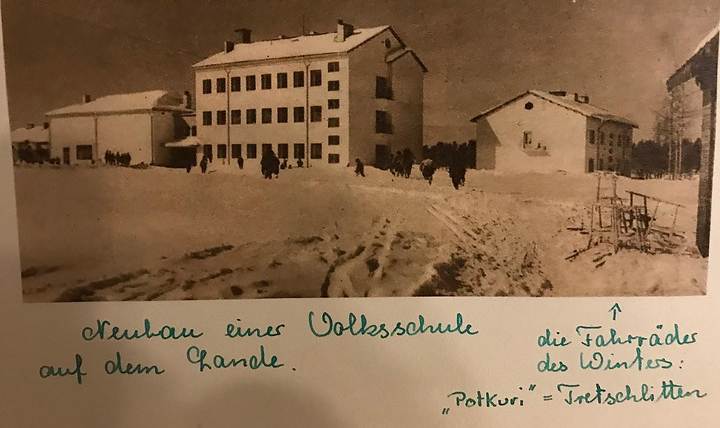 Neubau einer Volksschule
auf dem Lande.
↑
die Fahrräder
des Winters:
„Potkuri" = Tretschlitten